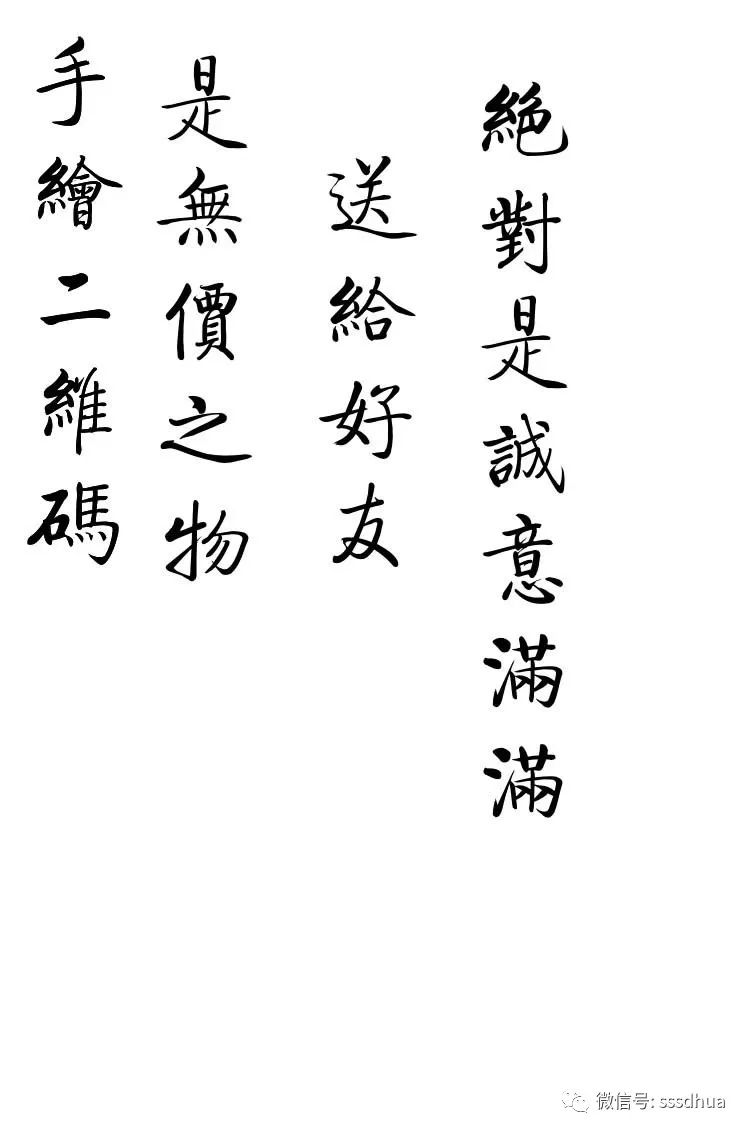 手繪二維碼
是無價之物
送給好友
絕對是誠意滿滿
微信号: sssdhua